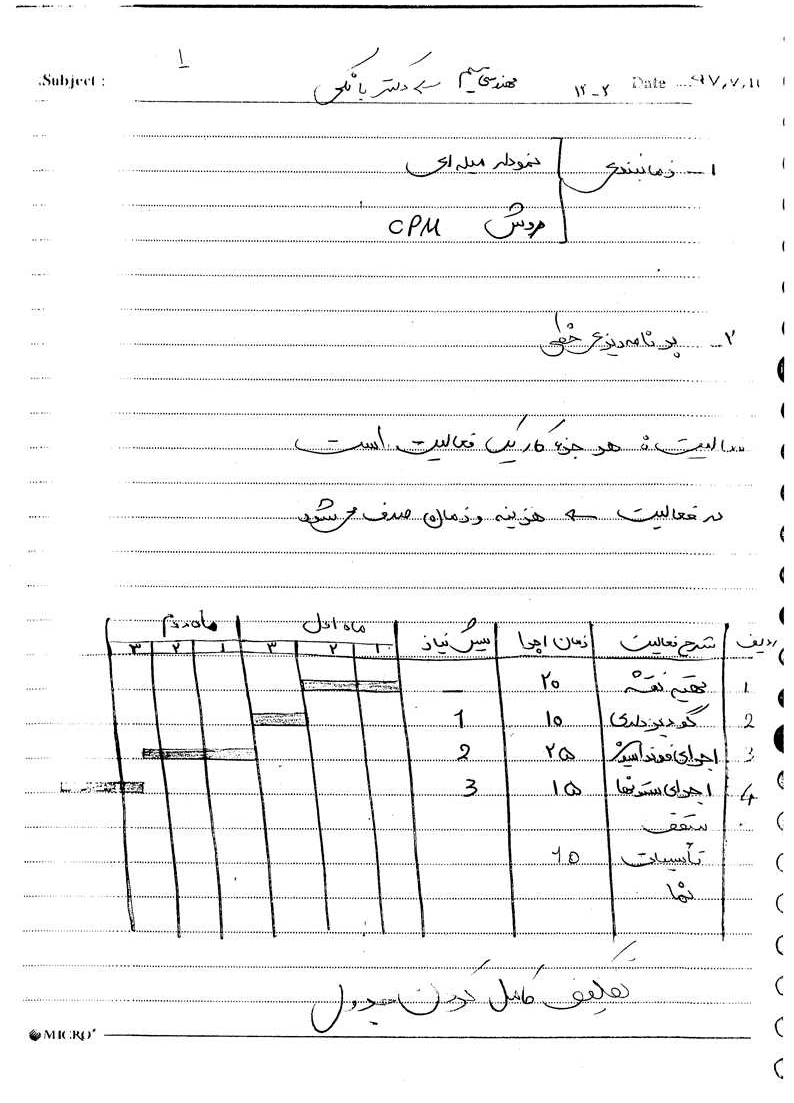 ۱
Subject :
مهندسی سیستم ← دکتر بانکی ۱۲-۲ Date ۹۷,۷,۱۱
۱- زمانبندی نمودار میله ای
روش CPM
۲- برنامه ریزی خطی
فعالیت: هر جزء کار یک فعالیت است
در فعالیت ← هزینه و زمان صرف می شود
ردیف شرح فعالیت زمان اجرا پیش نیاز ماه اول ماه دوم
۱ ۲ ۳ ۱ ۲ ۳
1 تهیه نقشه ۲۰ —
2 گودبرداری ۱۰ 1
3 اجرای فونداسیون ۲۵ 2
4 اجرای ستونها ۱۵ 3
سقف
تأسیسات
نما
تکلیف کامل کردن جدول
MICRO